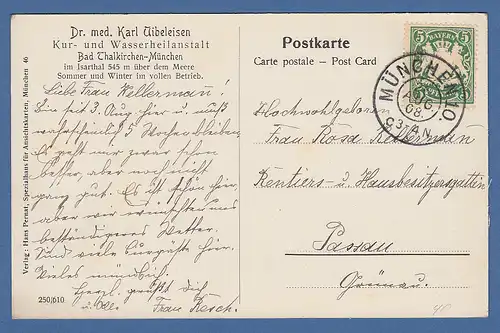 Dr. med. Karl Uibeleisen
Kur- und Wasserheilanstalt
Bad Thalkirchen-München
im Isarthal 545 m über dem Meere
Sommer und Winter im vollen Betrieb.
Liebe Frau Kellermann!
Bin seit 3. Aug. hier u. muß
wahrscheinlich 5 Wochen bleiben,
Es geht mir zwar schon
besser, aber noch nicht
ganz gut. Es ist schön hier,
aber wir wünschten uns
beständigeres Wetter.
Sind viele Kurgäste hier.
Vieles mündlich.
Herzl. grüßt Dich
u. Alle Frau Resch.
250/610
Verlag: Hans Pernat, Spezialhaus für Ansichtskarten, München 46
Postkarte
Carte postale – Post Card
5 BAYERN 5
MÜNCHEN 10.
AUG.
08.
Hochwohlgeboren
Frau Rosa Kellermann
Rentiers- u. Hausbesitzersgattin
Passau
Grünau.